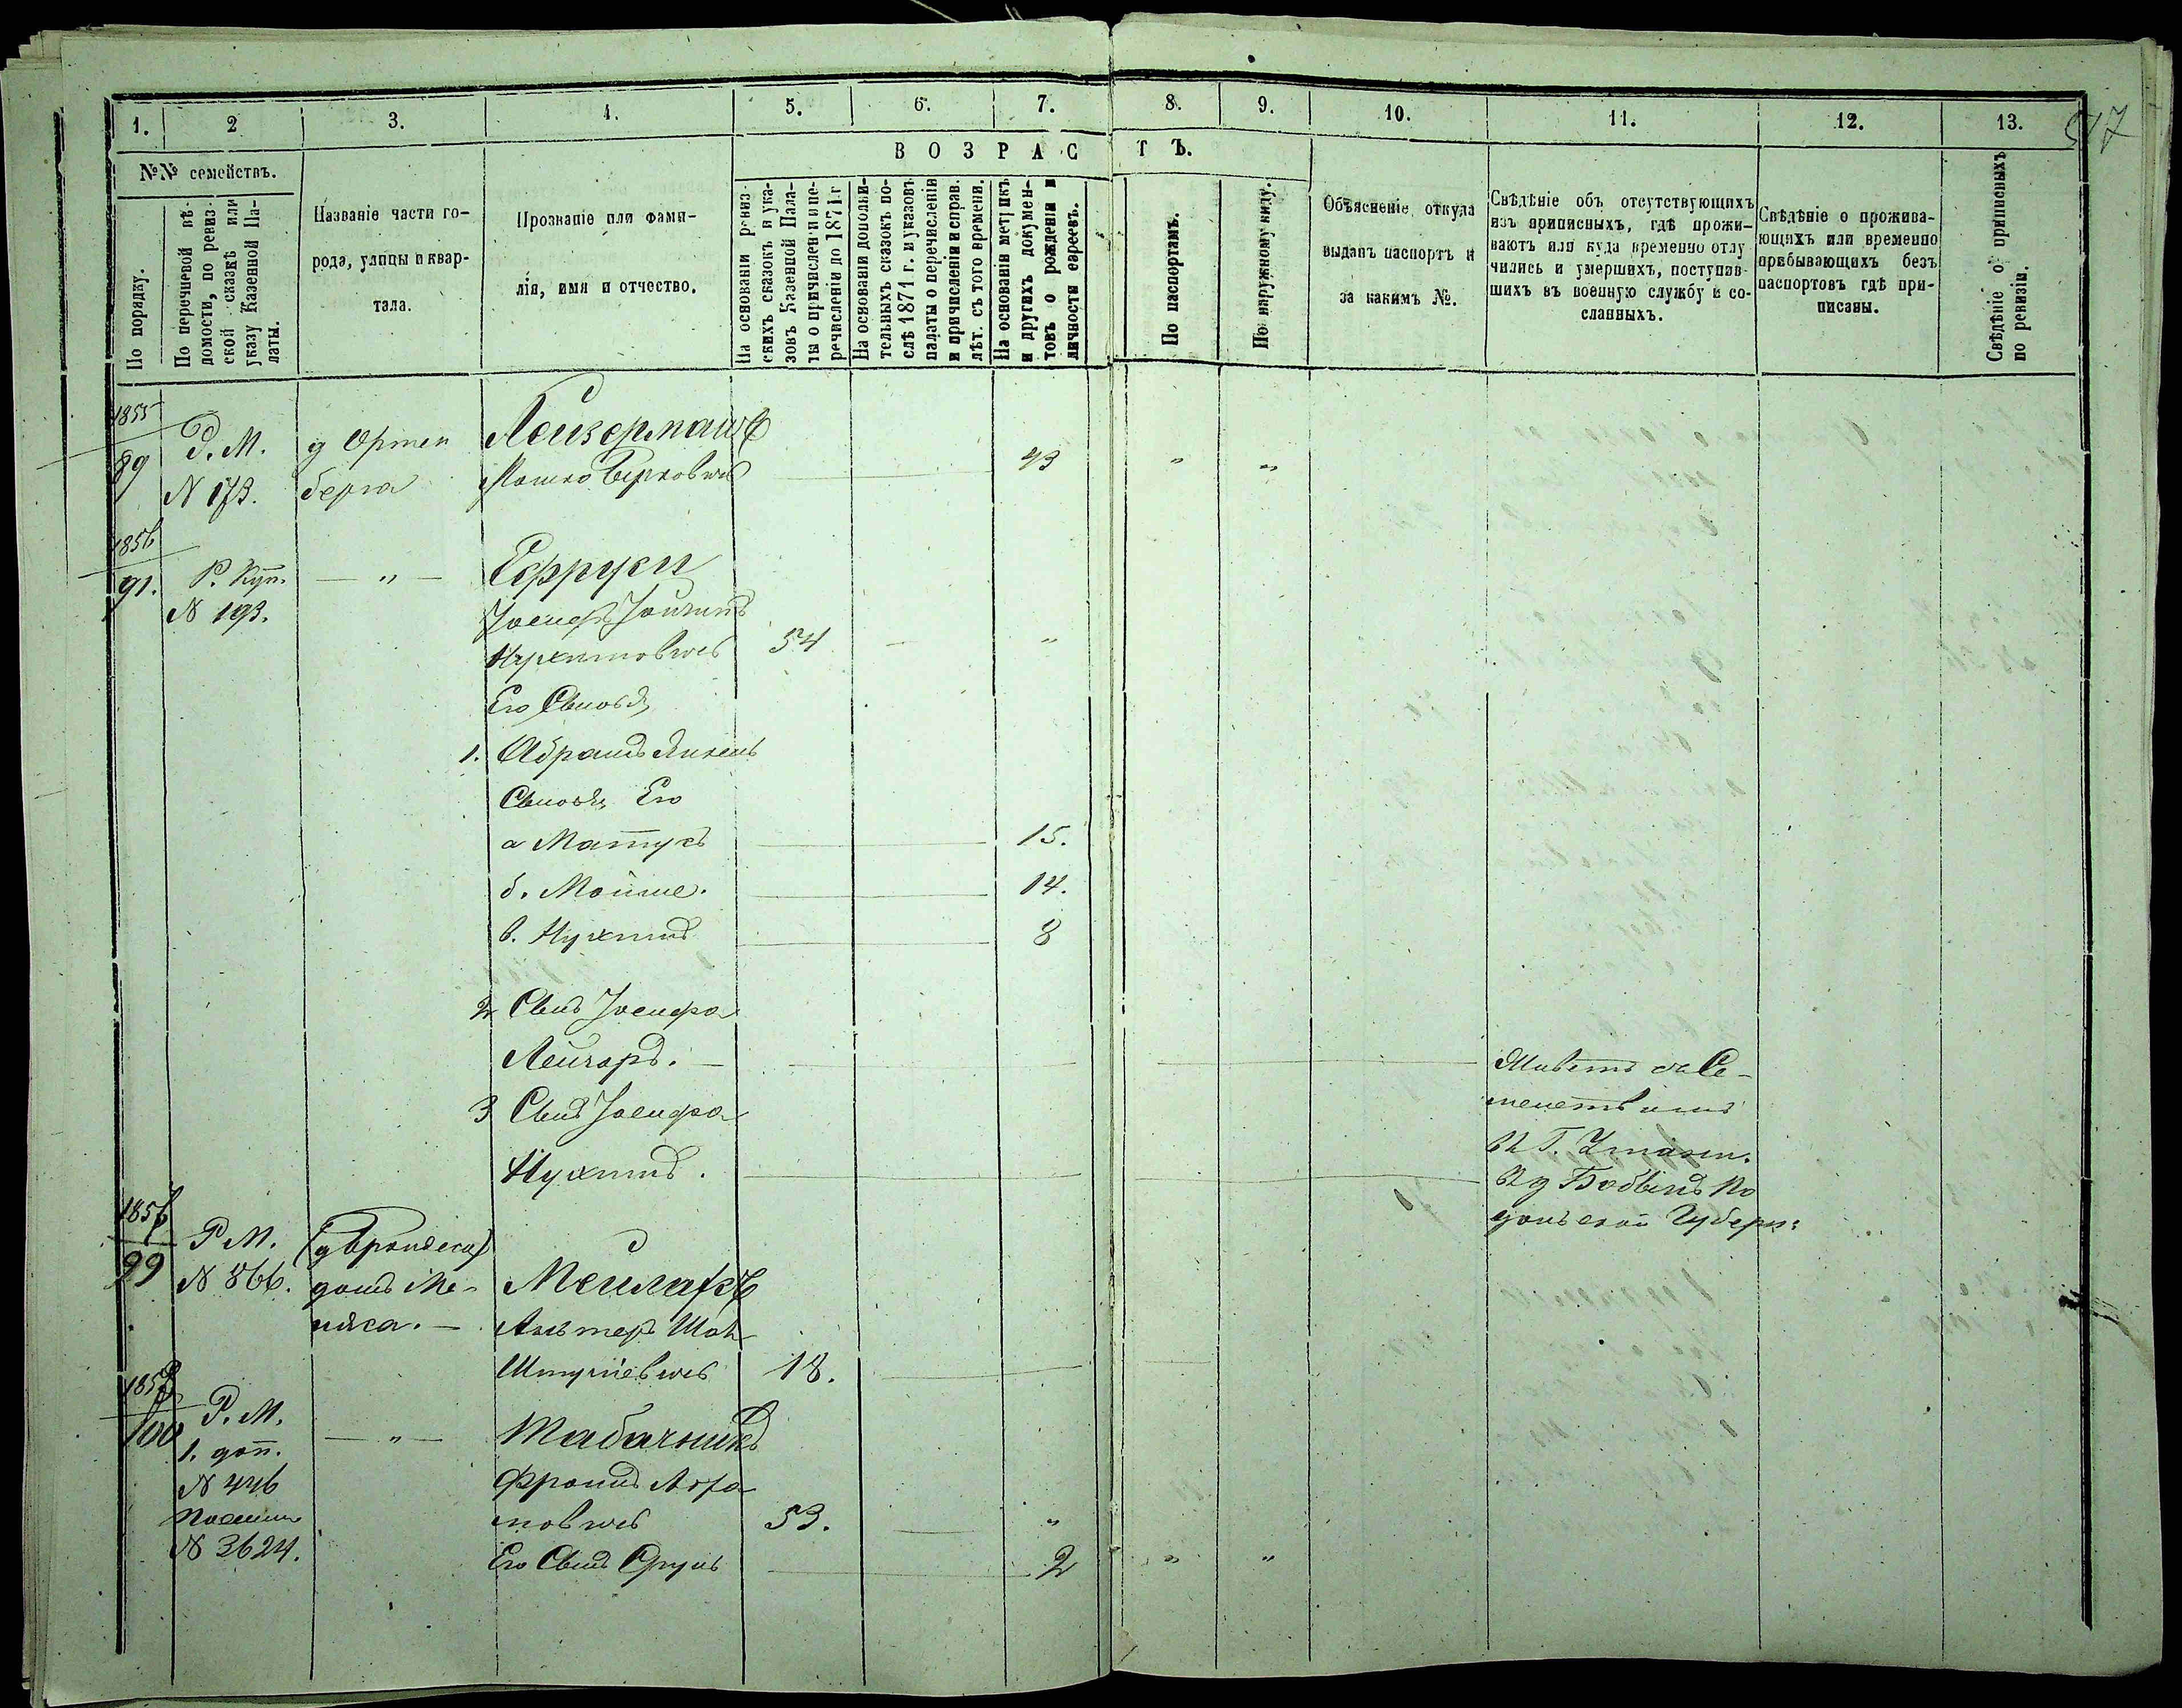 517
1. 2 3. 4. 5. 6. 7. 8. 9. 10. 11. 12. 13.
№№ семействъ.
По порядку.
По перечневой вѣ-
домости, по ревиз-
ской сказкѣ или
указу Казенной Па-
латы.
Названіе части го-
рода, улицы и квар-
тала.
Прозваніе или фами-
лія, имя и отчество.
ВОЗРАСТЪ.
На основаніи ревиз-
скихъ сказокъ и ука-
зовъ Казенной Пала-
ты о причисленіи и пе-
речисленіи до 1871 г
На основаніи дополни-
тельныхъ сказокъ по-
слѣ 1871 г. и указовъ
палаты о перечисленіи
и причисленіи и исправ.
лѣт. съ того времени.
На основаніи метрикъ
и другихъ докумен-
товъ о рожденіи и
личности евреевъ.
По паспортамъ.
По наружному виду.
Объясненіе откуда
выданъ паспортъ и
за какимъ №.
Свѣдѣніе объ отсутствующихъ
изъ приписныхъ, гдѣ прожи-
ваютъ или куда временно отлу
чились и умершихъ, поступив-
шихъ въ военную службу и со-
сланныхъ.
Свѣдѣніе о прожива-
ющихъ или временно
пребывающихъ безъ
паспортовъ гдѣ при-
писаны.
Свѣдѣніе о приписныхъ
по ревизіи.
1855
89
Р. М.
N 173.
д Ортен
берга
Лейзерманъ
Мошко Берковичъ
43 " "
1856
91.
Р. Куп.
N 193.
— " —
Ефруси
Іосифъ Іойнинъ
Нухимовичъ 54 — "
Его Сыновья
1. Абрамъ Янкель
Сыновья Его
а Матусъ 15.
б. Мойше. 14.
в. Нухимъ 8
2 Сынъ Іосифа
Лейзоръ. —
3 Сынъ Іосифа
Нухимъ.
Живетъ съ Се-
мействомъ
въ Г.
По
дольской Губерн:
1857
99
Р М.
N 866.
домъ
Мейлахъ
Альтеръ
18.
1858
100
Р. М.
1. доп.
N 446
N 3624.
— " —
Табачникъ
Фроимъ
мовичъ 53. "
Его Сынъ Сруль 2 " "